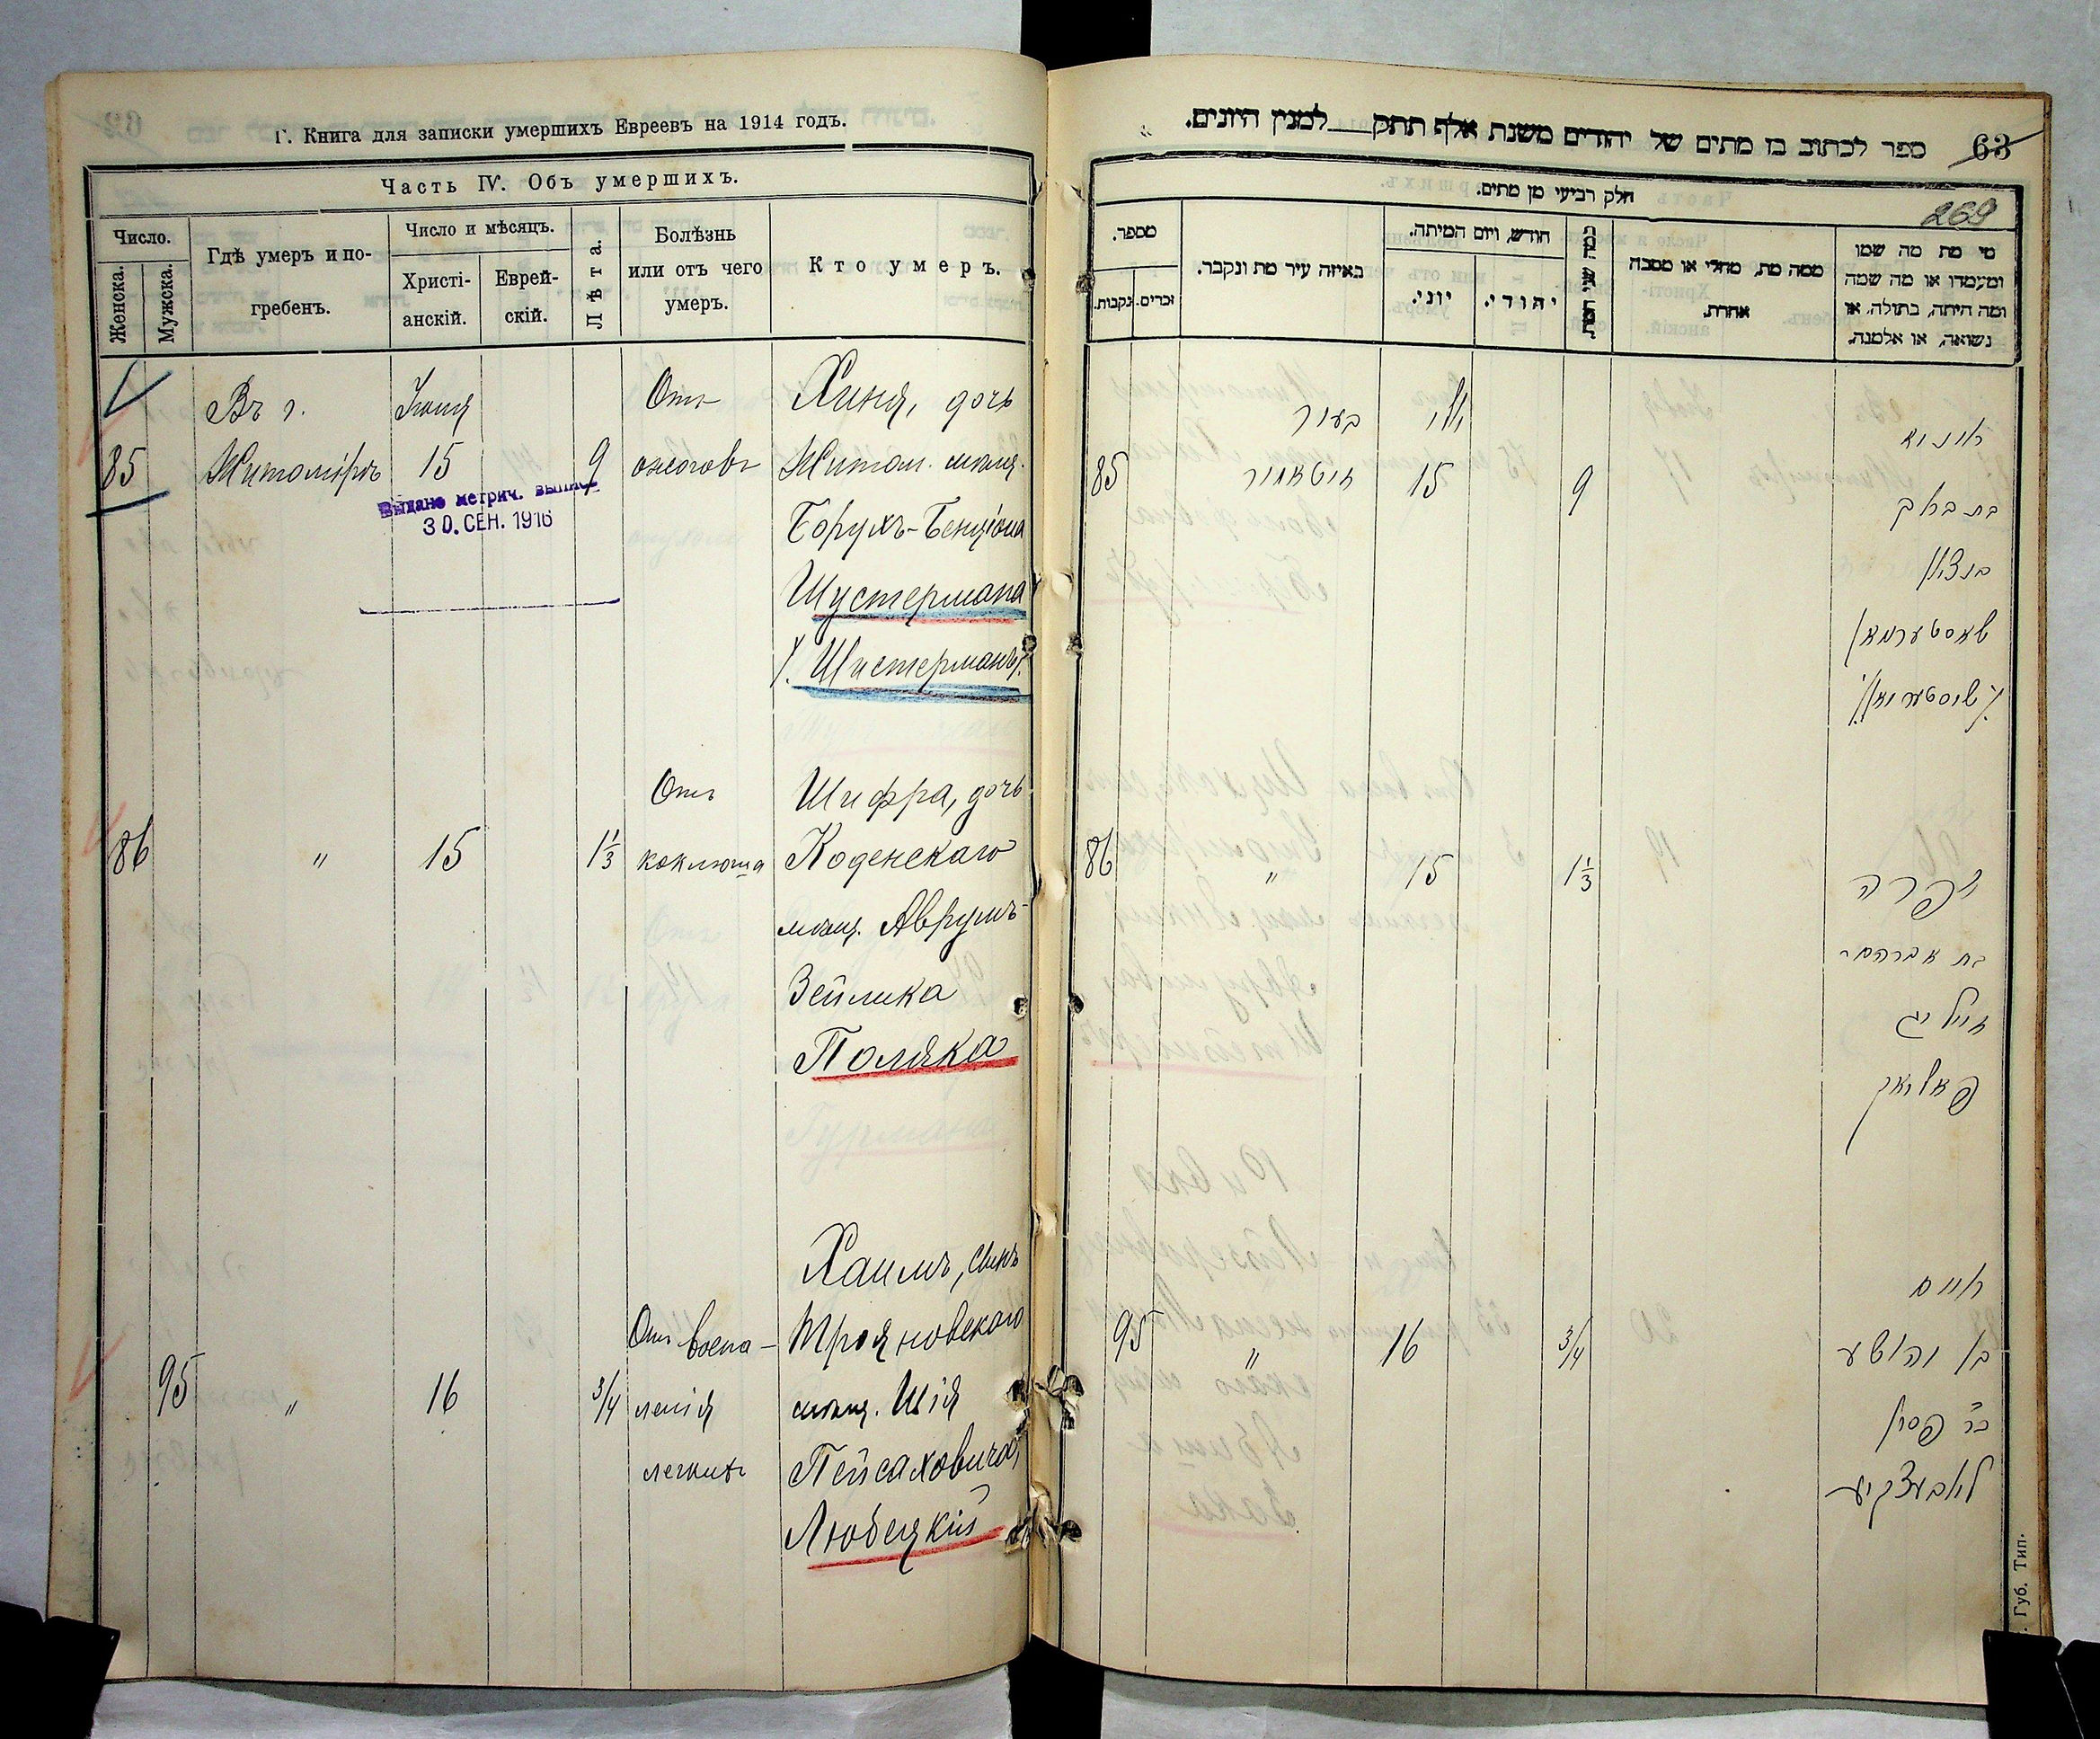 Г. Книга для записки умершихъ Евреевъ на 1914 годъ.
Часть IV. Объ умершихъ.
Число.
Женска.
Мужска.
Гдѣ умеръ и по-
гребенъ.
Число и мѣсяцъ.
Христі-
анскій.
Еврей-
скій.
Лѣта.
Болѣзнь
или отъ чего
умеръ.
Кто умеръ.
Въ г. Іюня Отъ Хиня, дочь
85 Житомірѣ 15 9 ожоговъ Житом. мѣщ.
Выдано метрич. выпись
30. СЕН. 1916
Борухъ-Бенціона
Шустермана
/. Шистерманъ/.
Отъ Шифра, дочь
86 " 15 1 1/3 коклюша Коденскаго
мѣщ. Аврумъ-
Зейлика
Поляка
Хаимъ, сынъ
Отъ воспа- Трояновскаго
95 " 16 3/4 ленія мѣщ. Шія
легкихъ Пейсаховича
Любецкій
ספר לכתוב בו מתים של יהודים משנת אלף תתק למנין היונים.
63
חלק רביעי מן מתים.
269
מספר.
נקבות.
זכרים.
באיזה עיר מת ונקבר.
חודש, ויום המיתה.
יוני.
יהודי.
כמה שני חיות.
ממה מת, מחלי או מסבה
אחרת.
מי מת מה שמו
ומעמדו או מה שמה
ומה היתה, בתולה, או
נשואה, או אלמנה.
בעיר יוני
85 זיטאמיר 15 9
בת ברוך
בנציון
שוסטערמאן
/שיסטערמאן/
86 " 15 1 1/3
שפרה
בת אברהם
זייליג
פאליאק
חיים
95 " 16 3/4 בן יהושע
Губ. Тип.